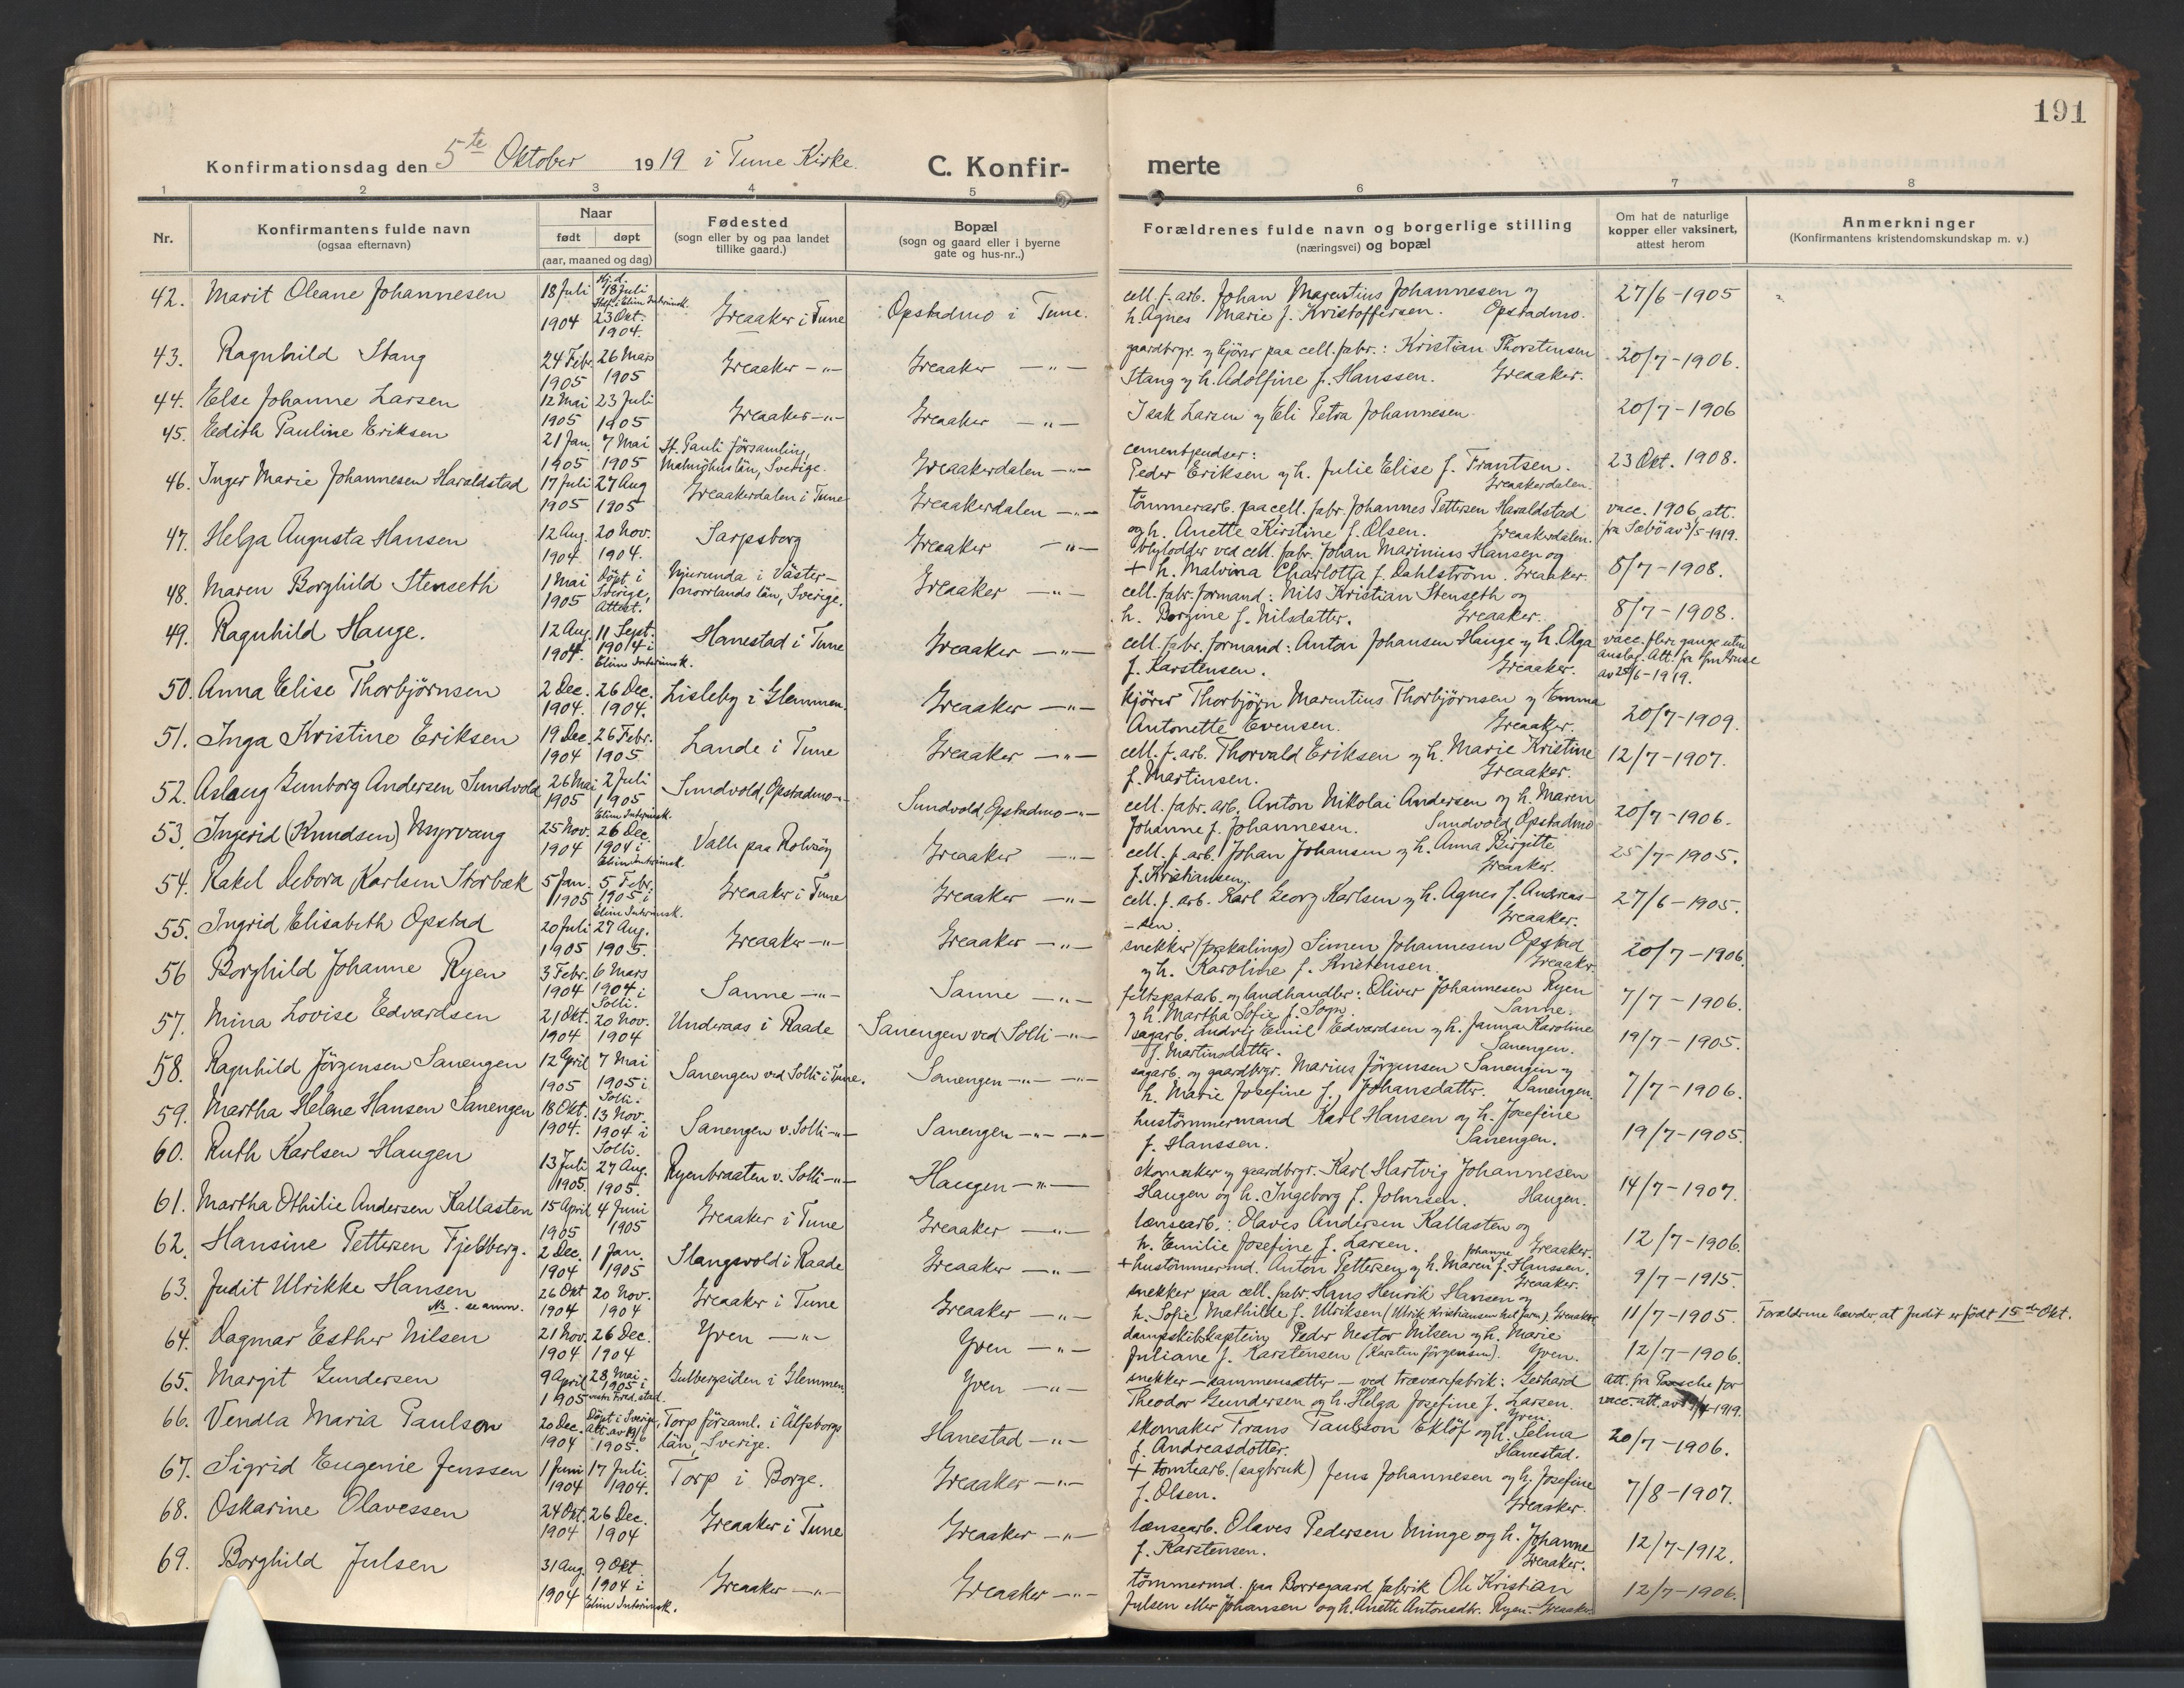 191
Konfirmationsdag den 5te Oktober 1919 i Tune Kirke. C. Konfir- merte
1 2 3 4 5 6 7 8
Nr. Konfirmantens fulde navn (ogsaa efternavn) Naar født døpt (aar, maaned og dag) Fødested (sogn eller by og paa landet tillike gaard.) Bopæl (sogn og gaard eller i byerne gate og hus-nr..) Forældrenes fulde navn og borgerlige stilling (næringsvei) og bopæl Om hat de naturlige kopper eller vaksinert, attest herom Anmerkninger (Konfirmantens kristendomskundskap m. v.)
42. Marit Oleane Johannesen 18 Juli 1904 Hj.d. 18 Juli Elim Interimsk. 23 Okt. 1904. Greaaker i Tune Opstadmo i Tune. cell. f. arb. Johan Marentius Johannesen og
h. Agnes Marie f. Kristoffersen. Opstadmo. 27/6-1905
43. Ragnhild Stang 24 Febr. 1905 26 Mars 1905 Greaaker -"- Greaaker -"- gaardbrgr. og kjører paa cell. fabr.: Kristian Thorstensen
Stang og h. Adolfine f. Hanssen. Greaaker. 20/7-1906.
44. Else Johanne Larsen 12 Mai 1905 23 Juli 1905 Greaaker -"- Greaaker -"- Isak Larsen og Eli Petra Johannesen. 20/7-1906
45. Edith Pauline Eriksen 21 Jan. 1905 7 Mai 1905 St. Pauli församling, Malmöhus län, Sverige. Greaakerdalen -"- cementpudser:
Peder Eriksen og h. Julie Elise f. Frantsen. Greaakerdalen. 23 Okt. 1908.
46. Inger Marie Johannesen Haraldstad 17 Juli 1905 27 Aug 1905 Greaakerdalen i Tune Greaakerdalen -"- tömmerarb. paa cell. fabr. Johannes Pettersen Haraldstad
og h. Anette Kirstine f. Olsen. Greaakerdalen. vacc. 1906, att. fra Sæbö av 3/5-1919.
47. Helga Augusta Hansen 12 Aug. 1904 20 Nov. 1904. Sarpsborg Greaaker -"- blylodder ved cell. fabr. Johan Marinius Hansen og
+ h. Malvina Charlotta f. Dahlström. Greaaker. 8/7-1908.
48. Maren Borghild Stenseth 1 Mai 1905 Döpt i Sverige, Attest. Njurunda i Väster-norrlands län, Sverige. Greaaker -"- cell. fabr. formand: Nils Kristian Stenseth og
h. Borgine f. Nilsdatter. Greaaker. 8/7-1908.
49. Ragnhild Hauge. 12 Aug. 1904. 11 Sept. 1904 i Elim Interimsk. Hanestad i Tune Greaaker -"- cell. fabr. formand: Anton Johansen Hauge og h. Olga
f. Karstensen. Greaaker. vacc. flere gange uten anslag. Att. fra av 25/6-1919.
50. Anna Elise Thorbjørnsen 2 Dec. 1904. 26 Dec. 1904. Lisleby i Glemmen. Greaaker -"- kjörer Thorbjörn Marentius Thorbjörnsen og Emma
Antonette Evensen. Greaaker. 20/7-1909.
51. Inga Kristine Eriksen 19 Dec. 1904 26 Febr. 1905 Lande i Tune Greaaker -"- cell. f. arb. Thorvald Eriksen og h. Marie Kristine
f. Martinsen. Greaaker. 12/7-1907.
52. Aslaug Gunborg Andersen Sundvold 26 Mai 1905 2 Juli 1905 Elim Interimsk. Sundvold, Opstadmo -"- Sundvold, Opstadmo -"- cell. fabr. arb. Anton Nikolai Andersen og h. Maren
Johanne f. Johannesen. Sundvold, Opstadmo 20/7-1906.
53. Ingerid (Knudsen) Myrvang 25 Nov. 1904 26 Dec. 1904 i Elim Interimsk. Valle paa Rolvsöy Greaaker -"- cell. f. arb. Johan Johansen og h. Anna Birgitte
f. Kristiansen. Greaaker. 25/7-1905.
54. Rakel Debora Karlsen Storbæk 5 Jan. 1905 5 Febr. 1905 i Elim Interimsk. Greaaker i Tune Greaaker -"- cell. f. arb. Karl Georg Karlsen og h. Agnes f. Andreas-
-sen. Greaaker. 27/6-1905.
55. Ingrid Elisabeth Opstad 20 Juli 1905 27 Aug. 1905. Greaaker -"- Greaaker -"- snekker (forskalings) Simen Johannesen Opstad
og h. Karoline f. Kristensen. Greaaker. 20/7-1906.
56 Borghild Johanne Ryen 3 Febr. 1904 6 Mars 1904 i Solli. Sanne -"- Sanne -"- feltspatarb. og landhandler: Oliver Johannesen Ryen
og h. Martha Sofie f. Sogn. Sanne. 7/7-1906.
57. Mina Lovise Edvardsen 21 Okt. 1904 20 Nov. 1904 Underaas i Raade Sanengen ved Solli -"- sagarb. Ludvig Emil Edvardsen og h. Janna Karoline
f. Martinsdatter. Sanengen. 19/7-1905.
58. Ragnhild Jörgensen Sanengen 12 April 1905 7 Mai 1905 i Solli. Sanengen ved Solli i Tune. Sanengen -"- -"- sagarb. og gaardbrgr. Marius Jörgensen Sanengen og
h. Marie Josefine f. Johansdatter. Sanengen. 7/7-1906.
59. Martha Helene Hansen Sanengen 18 Okt. 1904. 13 Nov. 1904 i Solli. Sanengen v. Solli -"- Sanengen -"- -"- hustömmermand Karl Hansen og h. Josefine
f. Hanssen. Sanengen. 19/7-1905.
60. Ruth Karlsen Haugen 13 Juli 1905. 27 Aug. 1905. Ryenbraaten v. Solli -"- Haugen -"- skomaker og gaardbrgr. Karl Hartvig Johannesen
Haugen og h. Ingeborg f. Johnsen. Haugen. 14/7-1907.
61. Martha Othilie Andersen Kallasten 15 April 1905 4 Juni 1905 Greaaker i Tune Greaaker -"- lænsearb.: Olaves Andersen Kallasten og
h. Emilie Josefine f. Larsen. Greaaker. 12/7-1906.
62. Hansine Pettersen Fjeldberg. 2 Dec. 1904 1 Jan. 1905 Slangsvold i Raade Greaaker -"- + hustömmermd. Anton Pettersen og h. Maren Johanne f. Hanssen.
Greaaker. 9/7-1915.
63. Judit Ulrikke Hansen NB. se anm. 26 Okt 1904 20 Nov. 1904 Greaaker i Tune Greaaker -"- snekker paa cell. fabr. Hans Henrik Hansen og
h. Sofie Mathilde f. Ulriksen (Ulrik Kristiansen het faren). Greaaker 11/7-1905. Forældrene hævder, at Judit er født 15de Okt.
64. Dagmar Esther Nilsen 21 Nov. 1904 26 Dec. 1904 Yven -"- Yven -"- dampskibskaptein Peder Nestor Nilsen og h. Marie
Juliane f. Karstensen (Karsten Jörgensen). Yven. 12/7-1906.
65. Margit Gundersen 9 April 1905 28 Mai 1905 i Fred.stad. Gulbergsiden i Glemmen Yven -"- snekker - sammensætter - ved trævarefabrik: Gerhard
Theodor Gundersen og h. Helga Josefine f. Larsen. Yven. att. fra Paasche for vacc. att. av 19/4-1919.
66. Vendla Maria Paulson 20 Dec. 1904 Döpt i Sverige, att. av 19/6 1905. Torp församl. i Älfsborgs län, Sverige. Hanestad -"- skomaker Frans Paulsson Eklöf og h. Selma
f. Andreasdotter. Hanestad. 20/7-1906.
67. Sigrid Eugenie Jenssen 1 Juni 1904 17 Juli. 1904. Torp i Borge. Greaaker -"- + tomtearb. (sagbruk) Jens Johannesen og h. Josefine
f. Olsen. Greaaker. 7/8-1907.
68. Oskarine Olavessen 24 Okt. 1904 26 Dec. 1904 Greaaker i Tune Greaaker -"- lænsearb. Olaves Pedersen Minge og h. Johanne
f. Karstensen. Greaaker. 12/7-1912.
69. Borghild Julsen 31 Aug. 1904 9 Okt. 1904 i Elim Interimsk. Greaaker -"- Greaaker -"- tömmermd. paa Borregaard fabrik Ole Kristian
Julsen eller Johansen og h. Anette Antonsdtr. Ryen. Greaaker. 12/7-1906.